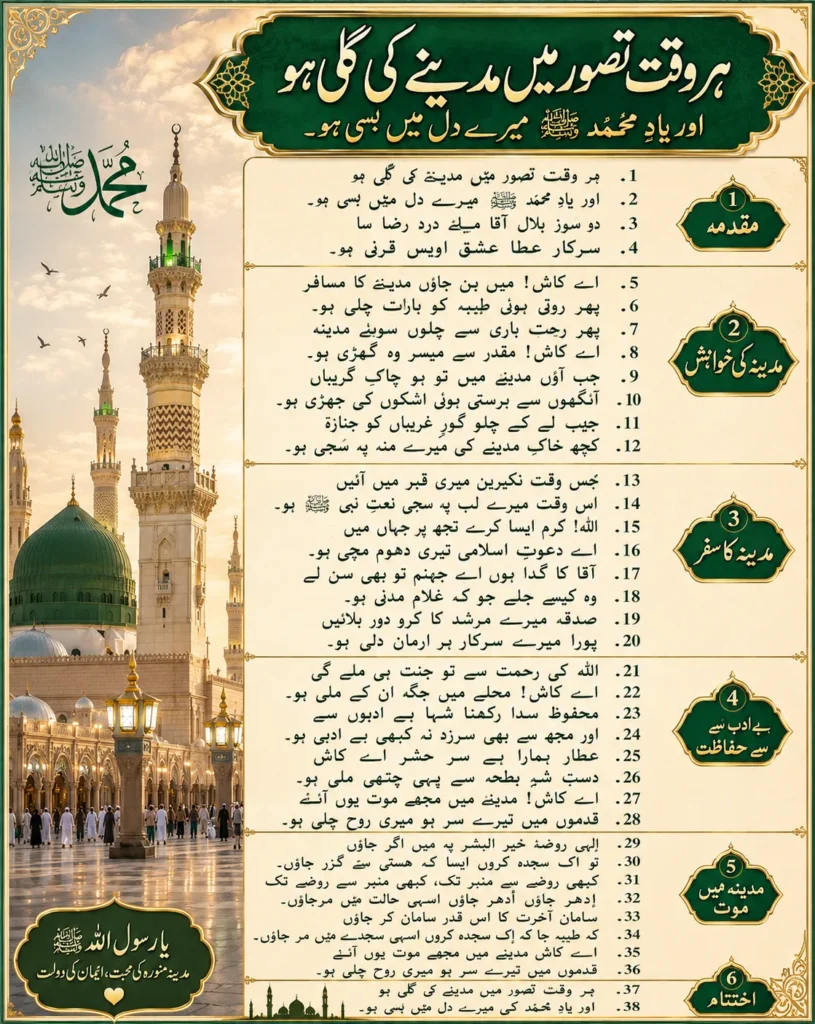 ہر وقت تصور میں مدینے کی گلی ہو
اور یادِ محمد ﷺ میرے دل میں بسی ہو۔
محمد ﷺ
1
مقدمه
1. ہر وقت تصور میں مدینے کی گلی ہو
2. اور یاد محمد ﷺ میرے دل میں بسی ہو۔
3. دو سوز بلال آقا میلئے درد رضا سا
4. سرکار عطا عشق اویس قرنی ہو۔
2
مدینہ کی خواہش
5. اے کاش! میں بن جاؤں مدینے کا مسافر
6. پھر روتی ہوئی طیبہ کو بارات چلی ہو۔
7. پھر رحتِ باری سے چلوں سوئے مدینہ
8. اے کاش! مقدر سے میسر وہ گھڑی ہو۔
9. جب آؤں مدینے میں تو ہو چاکِ گریباں
10. آنگھوں سے برستی ہوئی اشکوں کی جھڑی ہو۔
11. جیب لے کے چلو گورِ غریباں کو جنازة
12. کچھ خاکِ مدینے کی میرے منہ پہ سَجی ہو۔
3
مدینہ کا سفر
13. جس وقت نکیرین میری قبر میں آئیں
14. اس وقت میرے لب پہ سجی نعتِ نبی ﷺ ہو۔
15. اللہ! کرم ایسا کرے تجھ پر جہاں میں
16. اے دعوتِ اسلامی تیری دھوم مچی ہو۔
17. آقا کا گدا ہوں اے جہنم تو بھی سن لے
18. وہ کیسے جلے جو کہ غلام مدنی ہو۔
19. صدقہ میرے مرشد کا کرو دور بلائیں
20. پورا میرے سرکار ہر ارمان دلی ہو۔
4
بے ادب سے
سے حفاظت
21. اللہ کی رحمت سے تو جنت ہی ملے گی
22. اے کاش! محلے میں جگہ ان کے ملی ہو۔
23. محفوظ سدا رکھنا شہا بے ادبوں سے
24. اور مجھ سے بھی سرزد نہ کبھی بے ادبی ہو۔
25. عطار ہمارا ہے سر حشر اے کاش
26. دستِ شہِ بطحہ سے یہی چتھی ملی ہو۔
27. اے کاش! مدینے میں مجھے موت یوں آئے
28. قدموں میں تیرے سر ہو میری روح چلی ہو۔
5
مدینہ میں
موت
29. اِلٰہی روضۂ خیر البشر پہ میں اگر جاؤں
30. تو اک سجدہ کروں ایسا کہ ھستی سے گزر جاؤں۔
31. کبھی روضے سے منبر تک، کبھی منبر سے روضے تک
32. اِدھر جاؤں اُدھر جاؤں اسہی حالت میں مرجاؤں۔
33. سامان آخرت کا اس قدر سامان کر جاؤں
34. کہ طیبہ جا کہ اِک سجدہ کروں اسہی سجدے میں مر جاؤں۔
35. اے کاش مدینے میں مجھے موت یوں آئے
36. قدموں میں تیرے سر ہو میری روح چلی ہو۔
6
اختتام
37. ہر وقت تصور میں مدینے کی گلی ہو
38. اور یادِ محمد کی میرے دل میں بسی ہو۔
یا رسول اللہ ﷺ
مدینہ منورہ کی محبت، ایمان کی دولت